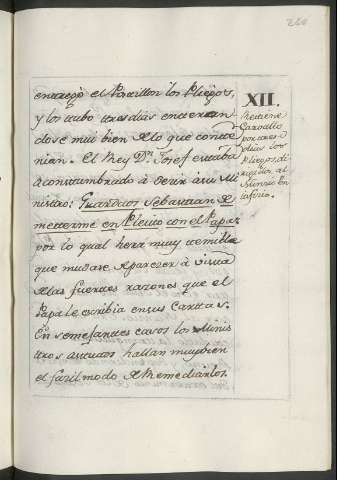 260
entregò el Postillon los Pliegos,
y los tubo tres dias enteran
dose mui bien de lo que conte
nian. El Rey Dn. Josef estaba
acostumbrado à decir à su Mi
nistro: Guardaos Sebastian de
meterme en Pleito con el Papa:
por lo qual hera muy temible
que mudase de parecer à vista
de las fuertes razones que el
Papa le escribia en sus Cartas.
En semejantes casos los Minis
tros astutos hallan muy bien
el facil modo de Remediarlos.
XII.
Retiene
Carvallo
por tres
dias los
Pliegos, di
rigidos al
Nuncio Pon
tificio.